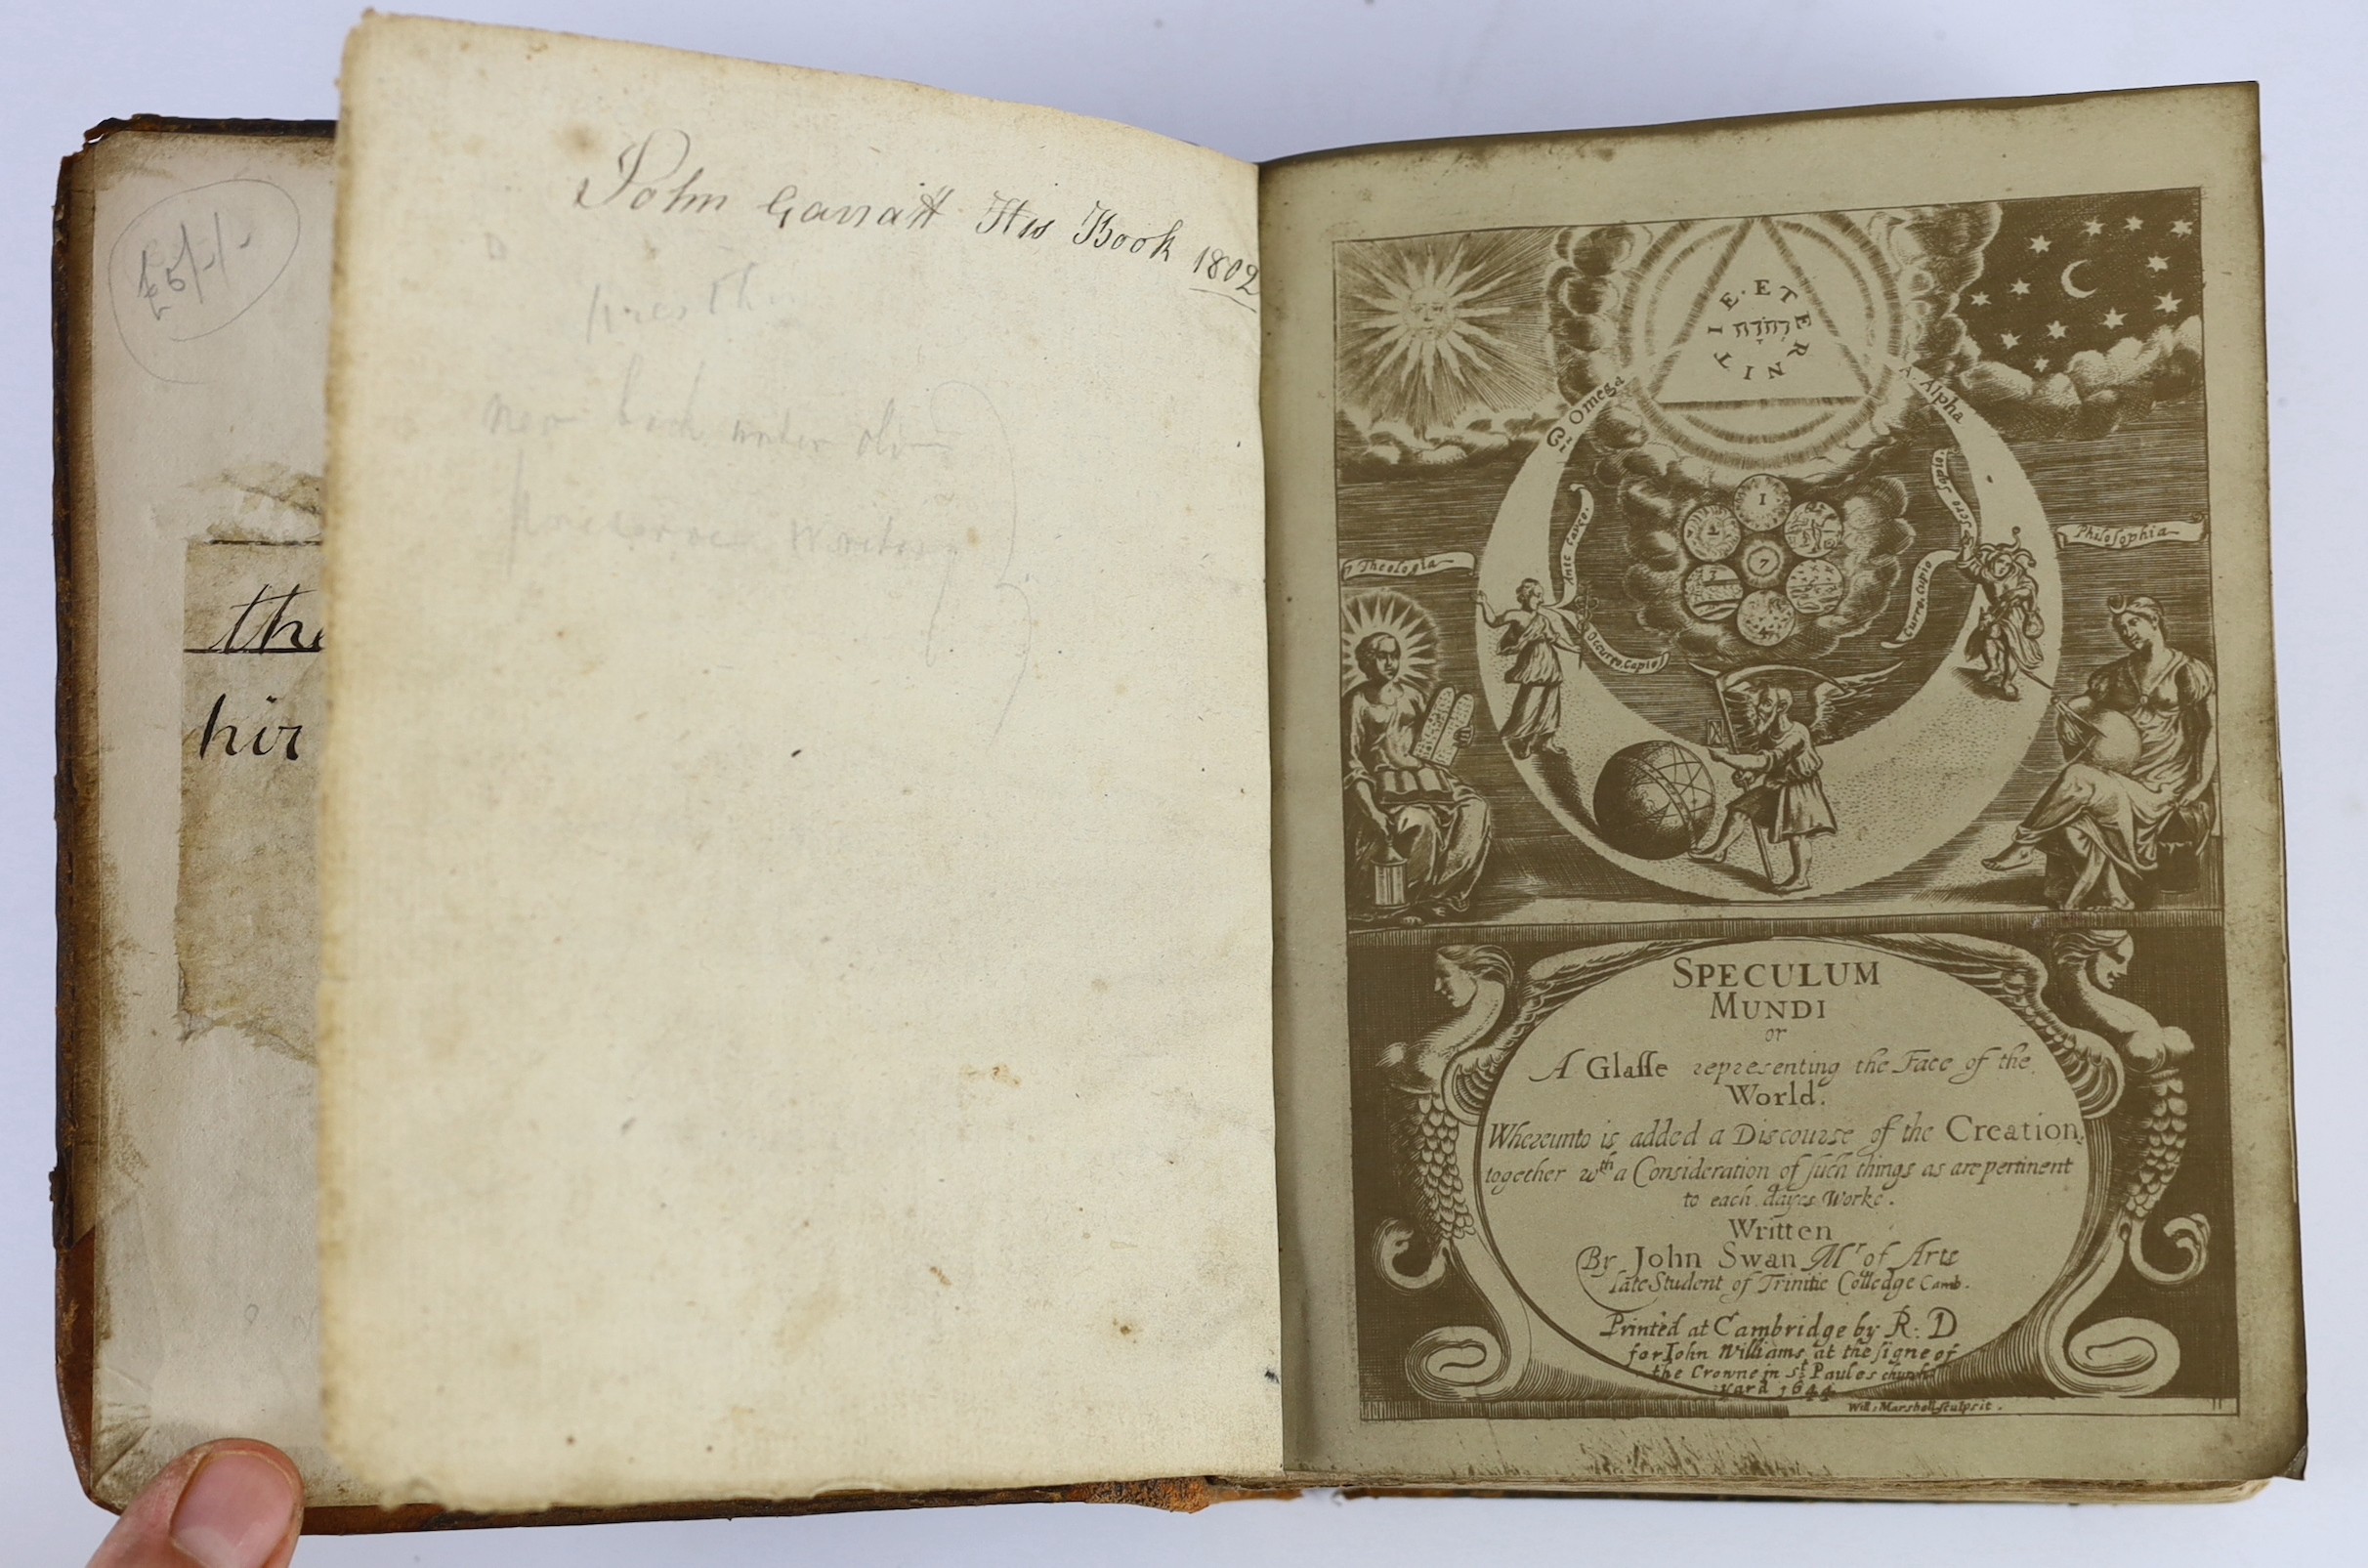 £5/-/-
the
his
John Garratt His Book 1802
ÆTERNITIE. ET
יְהֹוָה
ω Omega
A. Alpha
1
7
Ante Fauco.
Occurro. Capio
Scio Sapio.
Curro. Cupio
Theologia
Philosophia
SPECULUM
MUNDI
or
A Glaſſe representing the Face of the
World.
Whereunto is added a Discourse of the Creation,
together wth a Consideration of ſuch things as are pertinent
to each dayes Worke.
Written
By John Swan Mr of Arts
late Student of Trinitie Colledge Camb.
Printed at Cambridge by R: D
for Iohn Williams at the ſigne of
the Crowne in St Paules church
yard 1644
Will: Marshall ſculpsit.